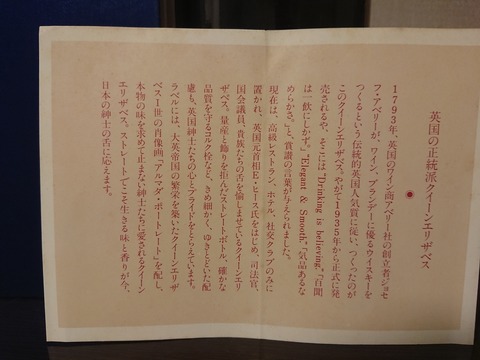 英国の正統派クイーンエリザベス
1793年、英国のワイン商アベリー社の創立者ジョセ
フ・アベリーが、ワイン、ブランデーに優るウイスキーを
つくるという伝統的英国人気質に従い、つくったのが
このクイーンエリザベス。やがて1935年から正式に発
売されるや、そこには"Drinking is believing."「百聞
は一飲にしかず。」"Elegant & Smooth."「気品あるな
めらかさ。」と、賞讃の言葉が与えられました。
現在は、高級レストラン、ホテル、社交クラブのみに
置かれ、英国元首相E・ヒース氏をはじめ、司法官、
国会議員、貴族たちの舌を愉しませているクイーンエリ
ザベス。量産と飾りを拒んだストレートボトル。確かな
品質を守るコルク栓など、きめ細かく、ゆきとどいた配
慮も、英国紳士たちの心とプライドをとらえています。
ラベルには、大英帝国の繁栄を築いたクイーンエリザ
ベスI世の肖像画「アルマダ・ポートレート」を配し、
本物の味を求めて止まない紳士たちに愛されるクイーン
エリザベス。ストレートでこそ生きる味と香りが、今、
日本の紳士の舌に応えます。